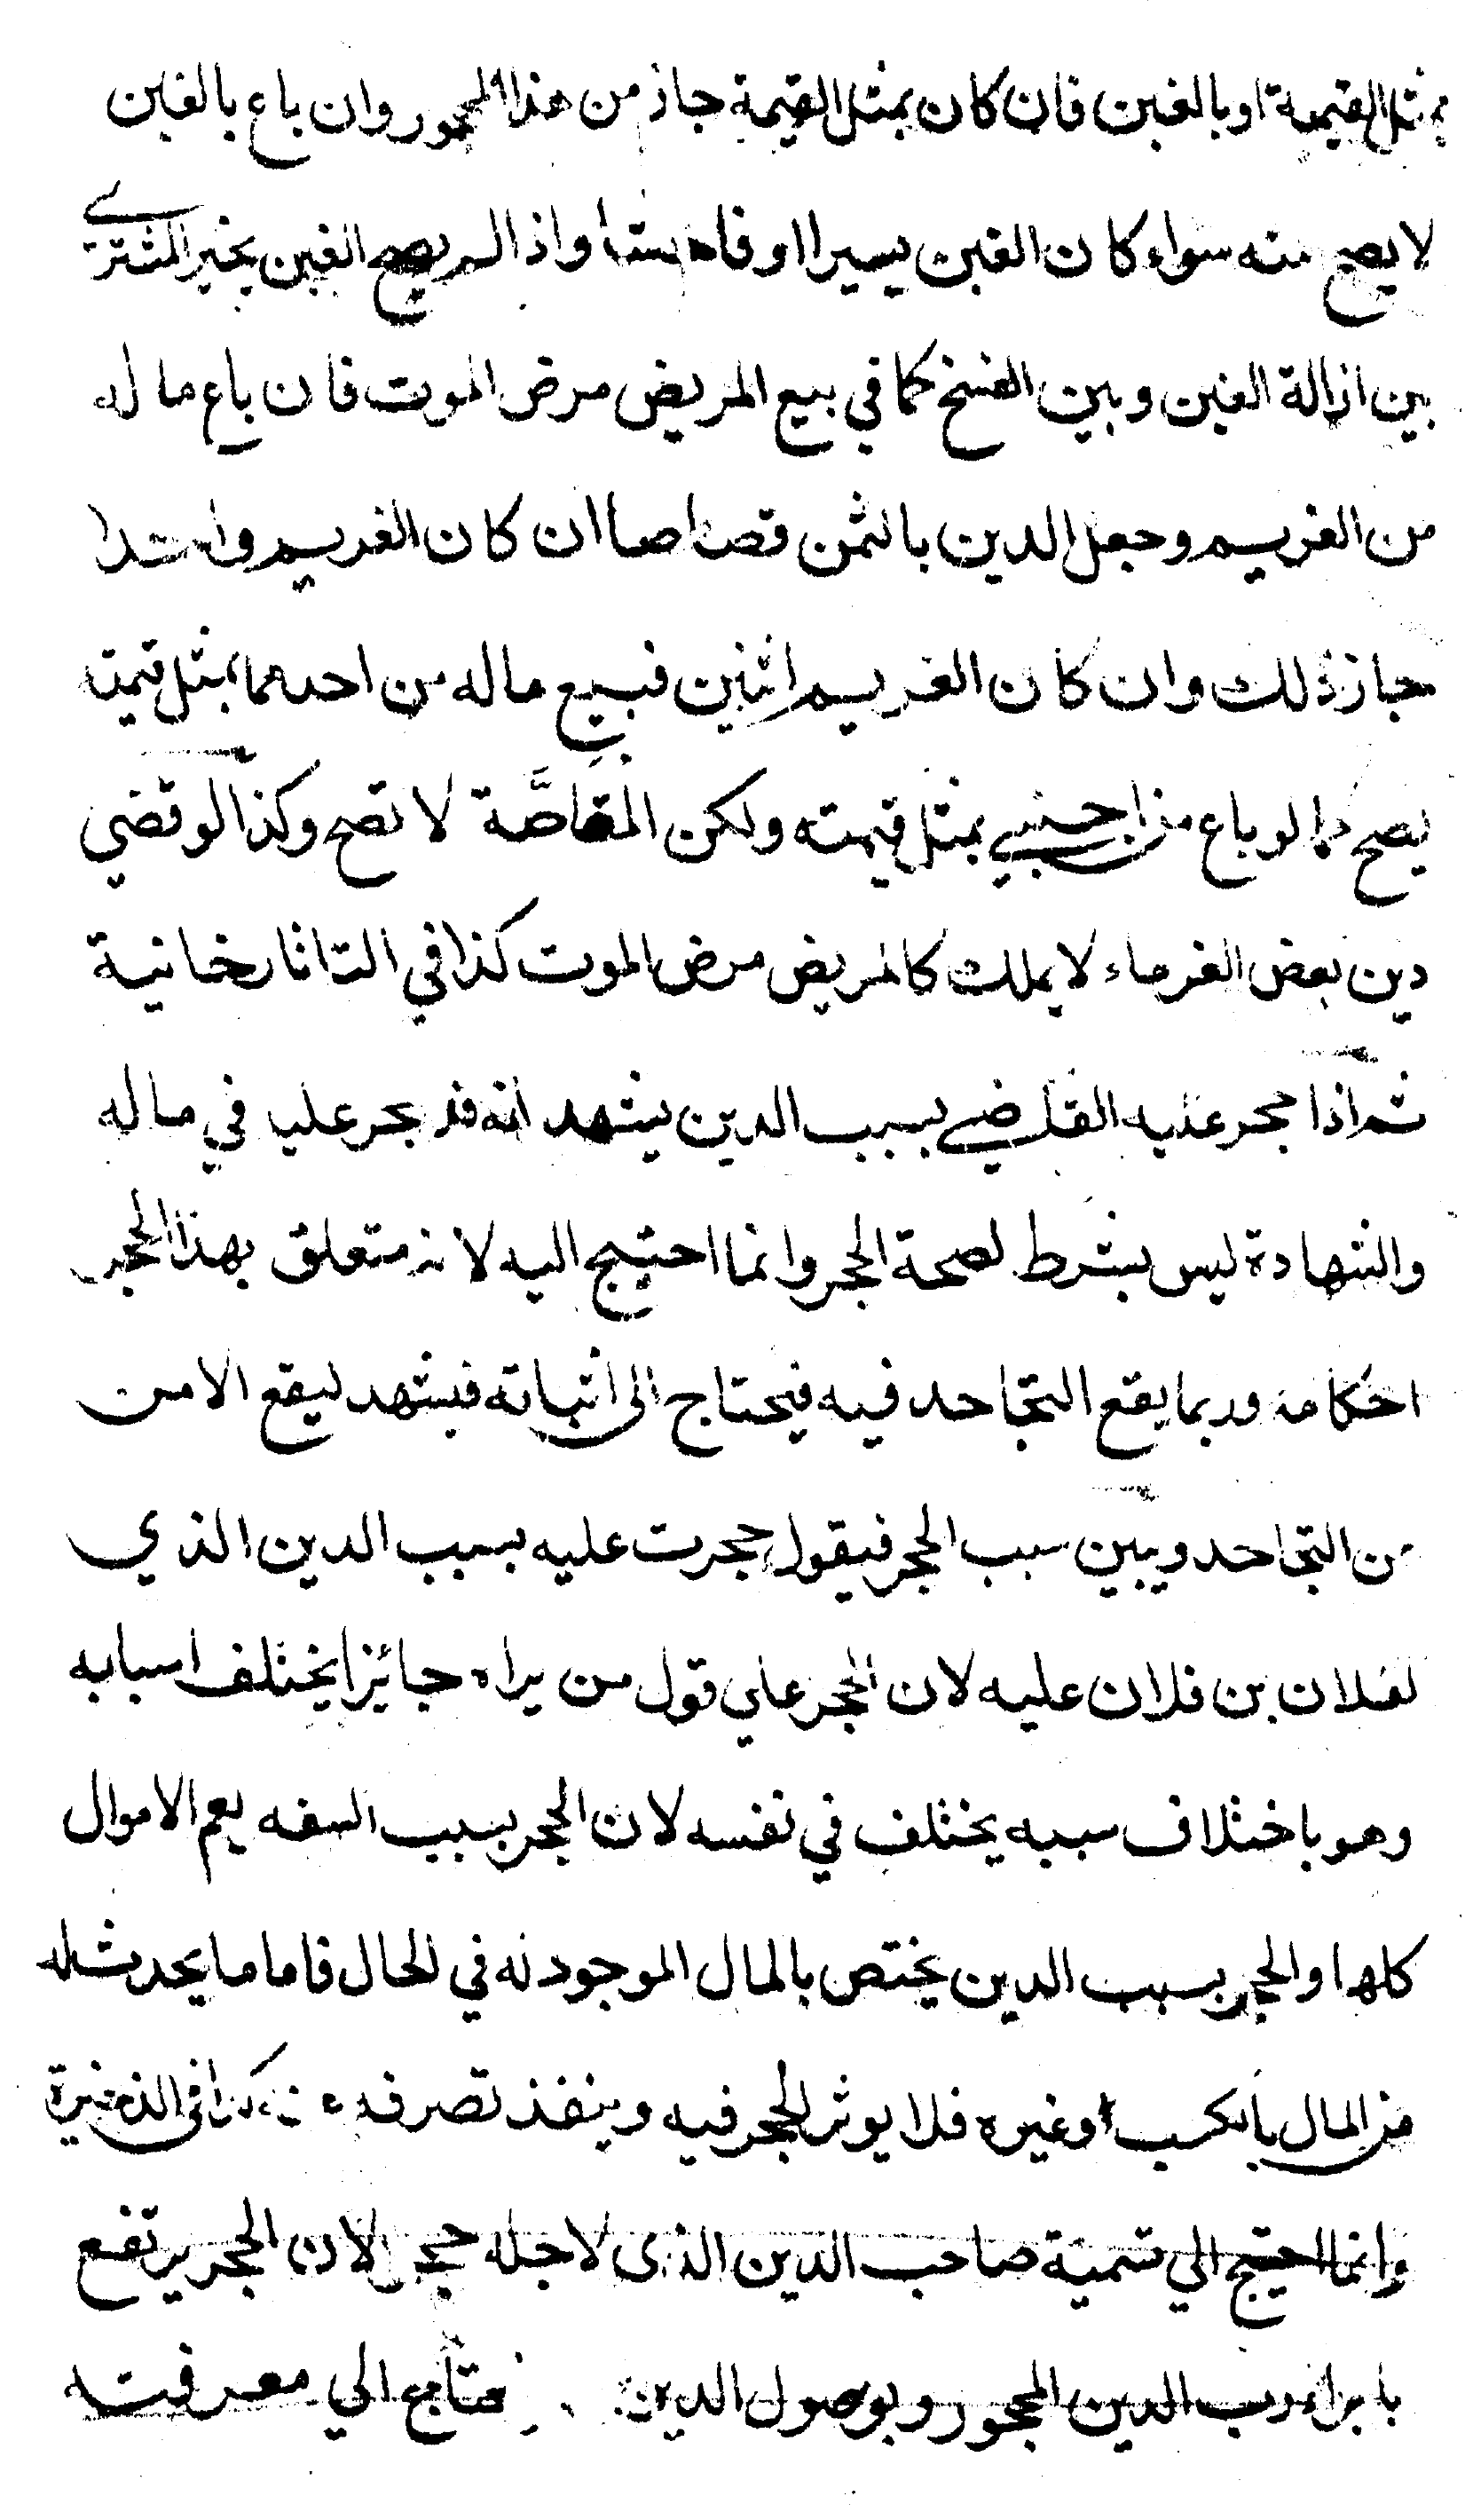 بمثل القيمة او بالغبن فان كان بمثل القيمة جاز من هذا المحجور وان باع بالغبن
لا يصح منه سواء كان الغبن يسيرا او فاحشا واذا لم يصح الغبن يخير المشتري
بين ازالة الغبن وبين الفسخ كما في بيع المريض مرض الموت فان باع ماله
من الغريم وجعل الدين بالثمن قصاصا ان كان الغريم واحدا
جاز ذلك وان كان الغريم اثنين فبيع ماله من احدهما بمثل قيمته
يصح كما لو باع من اجنبي بمثل قيمته ولكن المقاصَّة لا تصح وكذا لو قضي
دين بعض الغرماء لا يملك كالمريض مرض الموت كذا في التاتارخانية
ثم اذا حجر عليه القاضي بسبب الدين يشهد انه قد حجر عليه في ماله
والشهادة ليس بشرط لصحة الحجر وانما احتيج اليه لانه متعلق بهذا الحجر
احكامه وربما يقع التجاحد فيه فيحتاج الى اثباته فيشهد ليقع الامن
من التجاحد ويبين سبب الحجر فيقول حجرت عليه بسبب الدين الذي
لفلان بن فلان عليه لان الحجر علي قول من يراه جائزا يختلف اسبابه
وهو باختلاف سببه يختلف في نفسه لان الحجر بسبب السفه يعم الاموال
كلها والحجر بسبب الدين يختص بالمال الموجود له في الحال فاما ما يحدث له
من المال بالكسب او غيره فلا يوثر الحجر فيه وينفذ تصرفه فيه كذا في الذخيرة
وانما احتيج الي تسمية صاحب الدين الذى لاجله حجر لان الحجر يرتفع
بابراء رب الدين المحجور وبوصول الدين الي معرفته